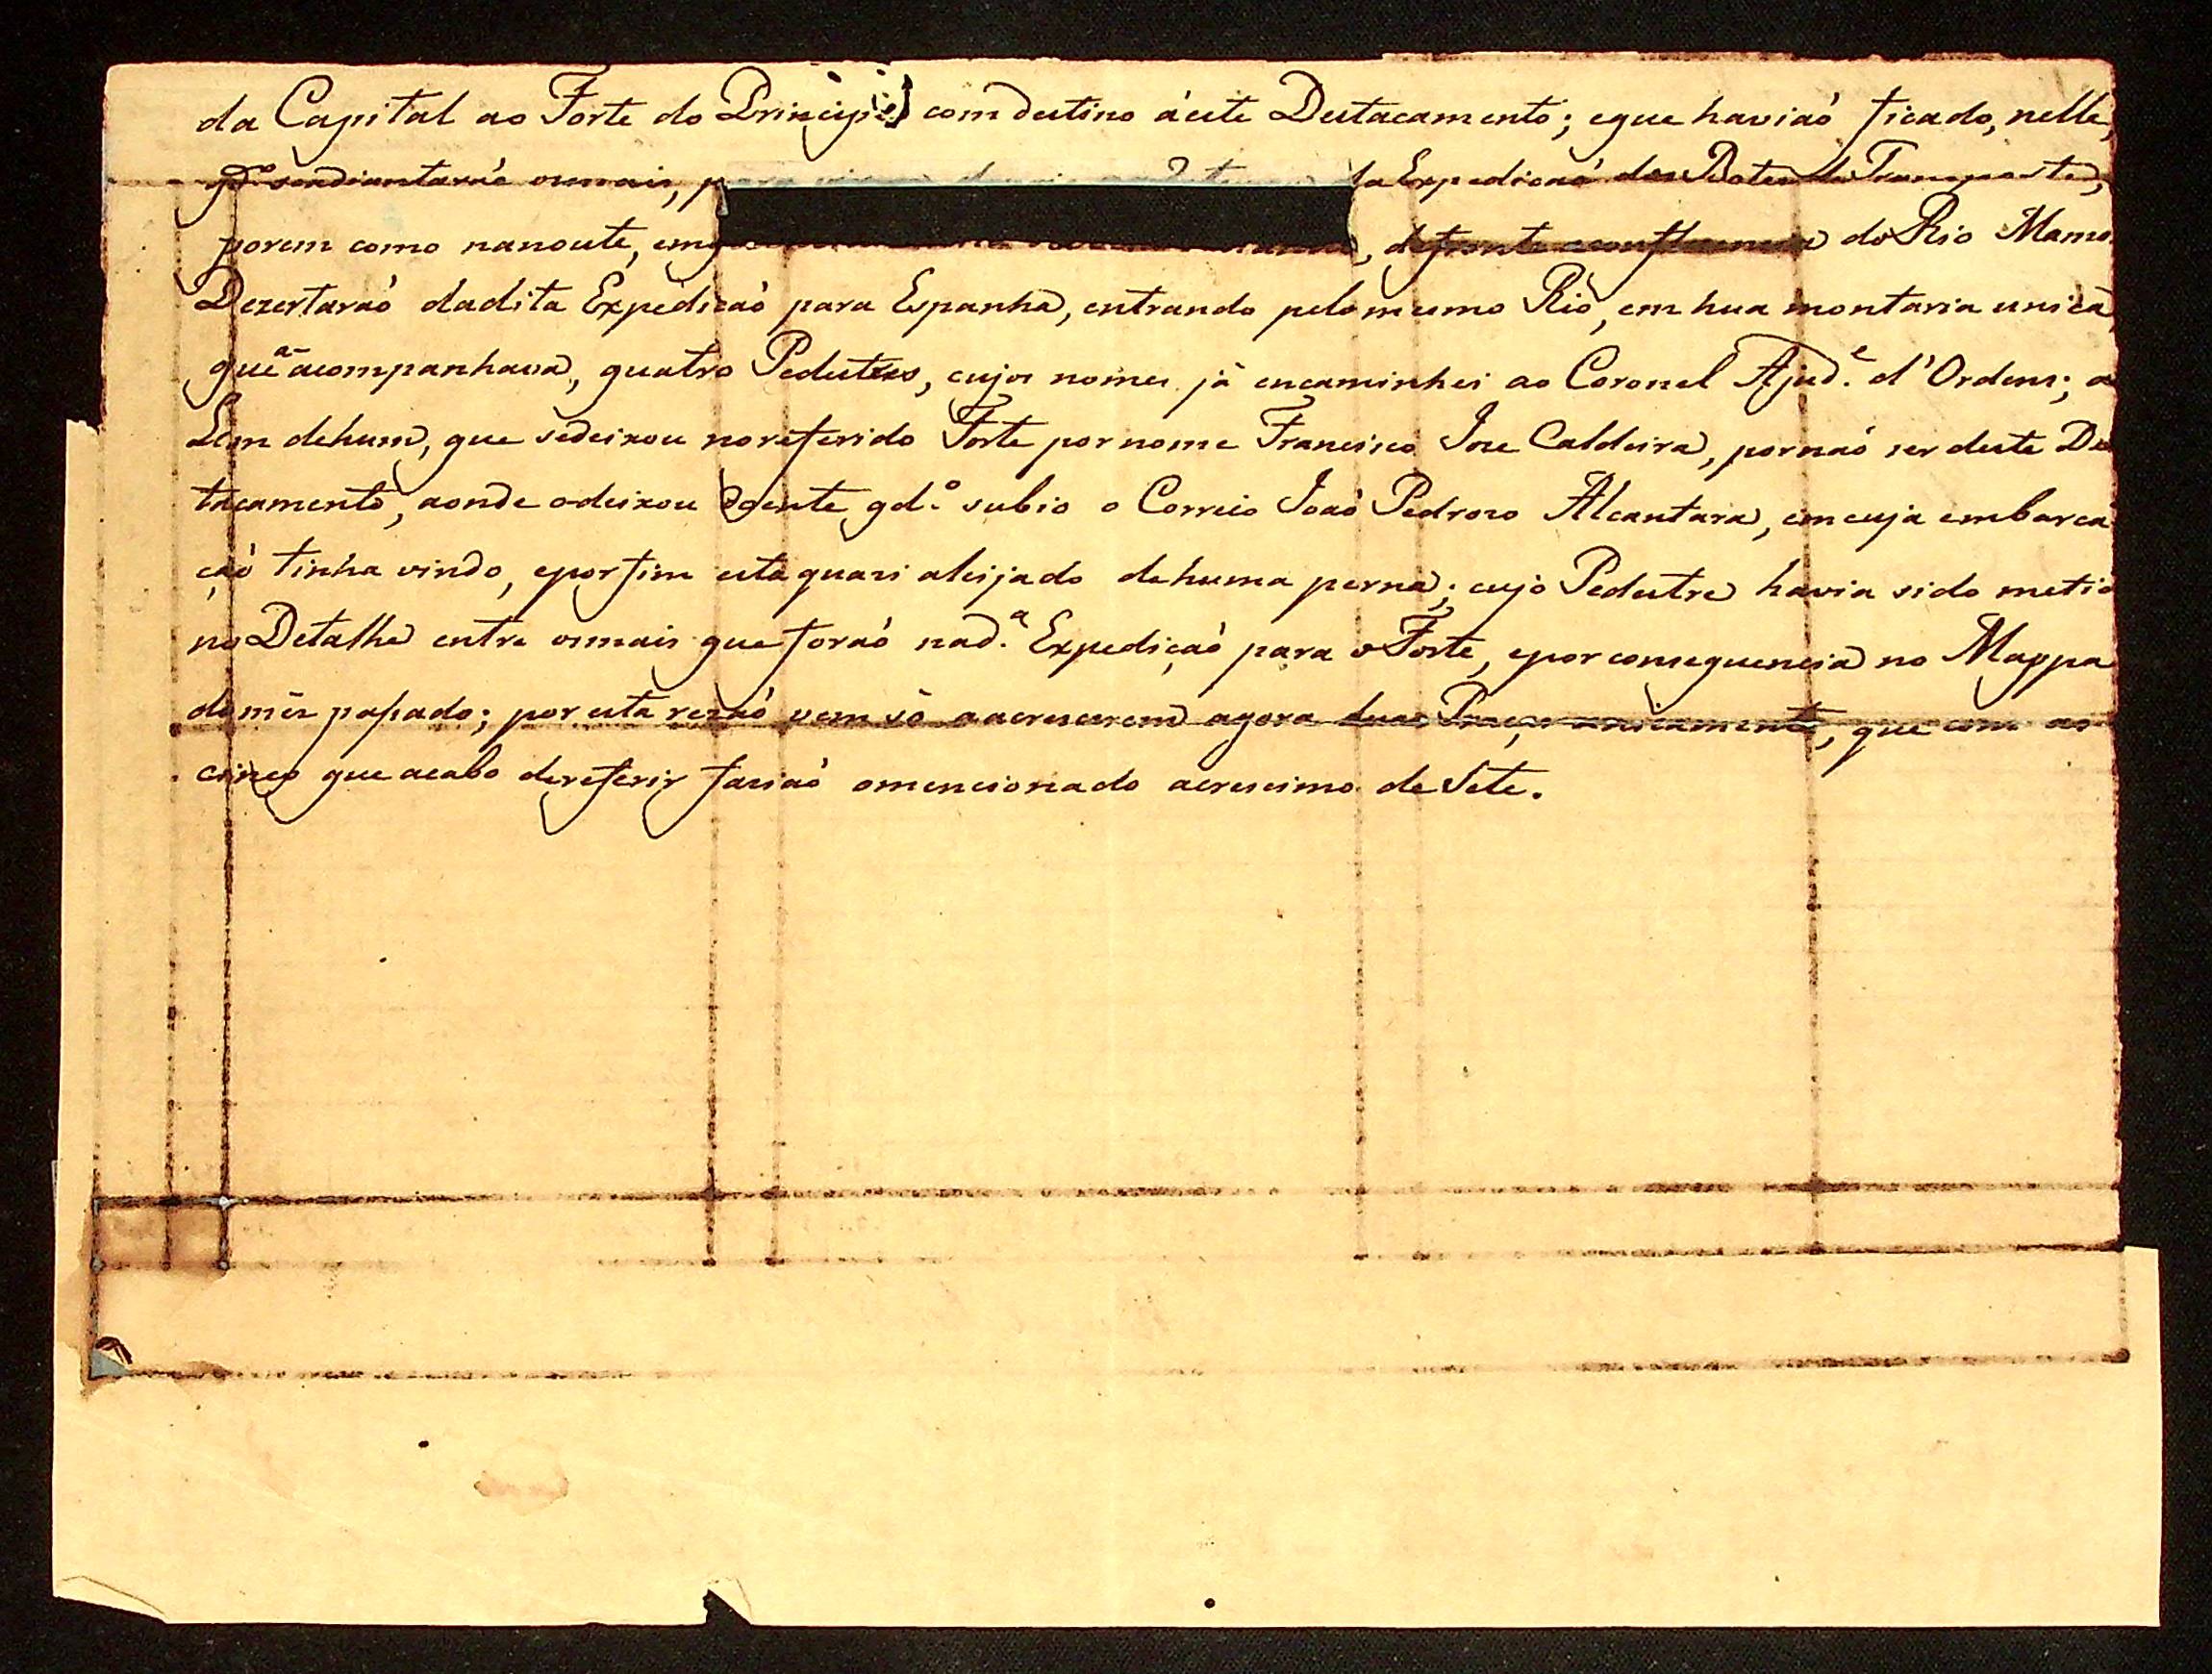 da Capital ao Forte do Principe com destino á este Destacamento; eque haviaó ficado, nelle,
qdo. seadiantaraó osmais, da Expedicaó dos Botes de Transporte,
porem como nanoute, em defronte aconfluencia do Rio Mamo
Dezertaraó dadita Expediçaó para Espanha, entrando pelomesmo Rio, em hua montaria unica
que aacompanhava, quatro Pedestres, cujos nomes já encaminhei ao Coronel Ajude. d'Ordens; a
Lem dehum, que sedeixou noreferido Forte por nome Francisco Joze Caldeira, pornaó ser deste Des
tacamento, aonde odeixou doente qdo. subio o Correio Joaó Pedrozo Alcantara, emcuja embarca
çaó tinha vindo, eporfim está quazi aleijado dehuma perna; cujo Pedestre havia sido metid
no Detalhe entre osmais que foraó nada. Expediçaó para o Forte, eporconsequencia no Mappa
domês passado; por esta rezaó vem só aacrescerem agora duas Praças unicamente, que com as
cinco que acabo dereferir faziaó omencionado acrescimo de Sete.